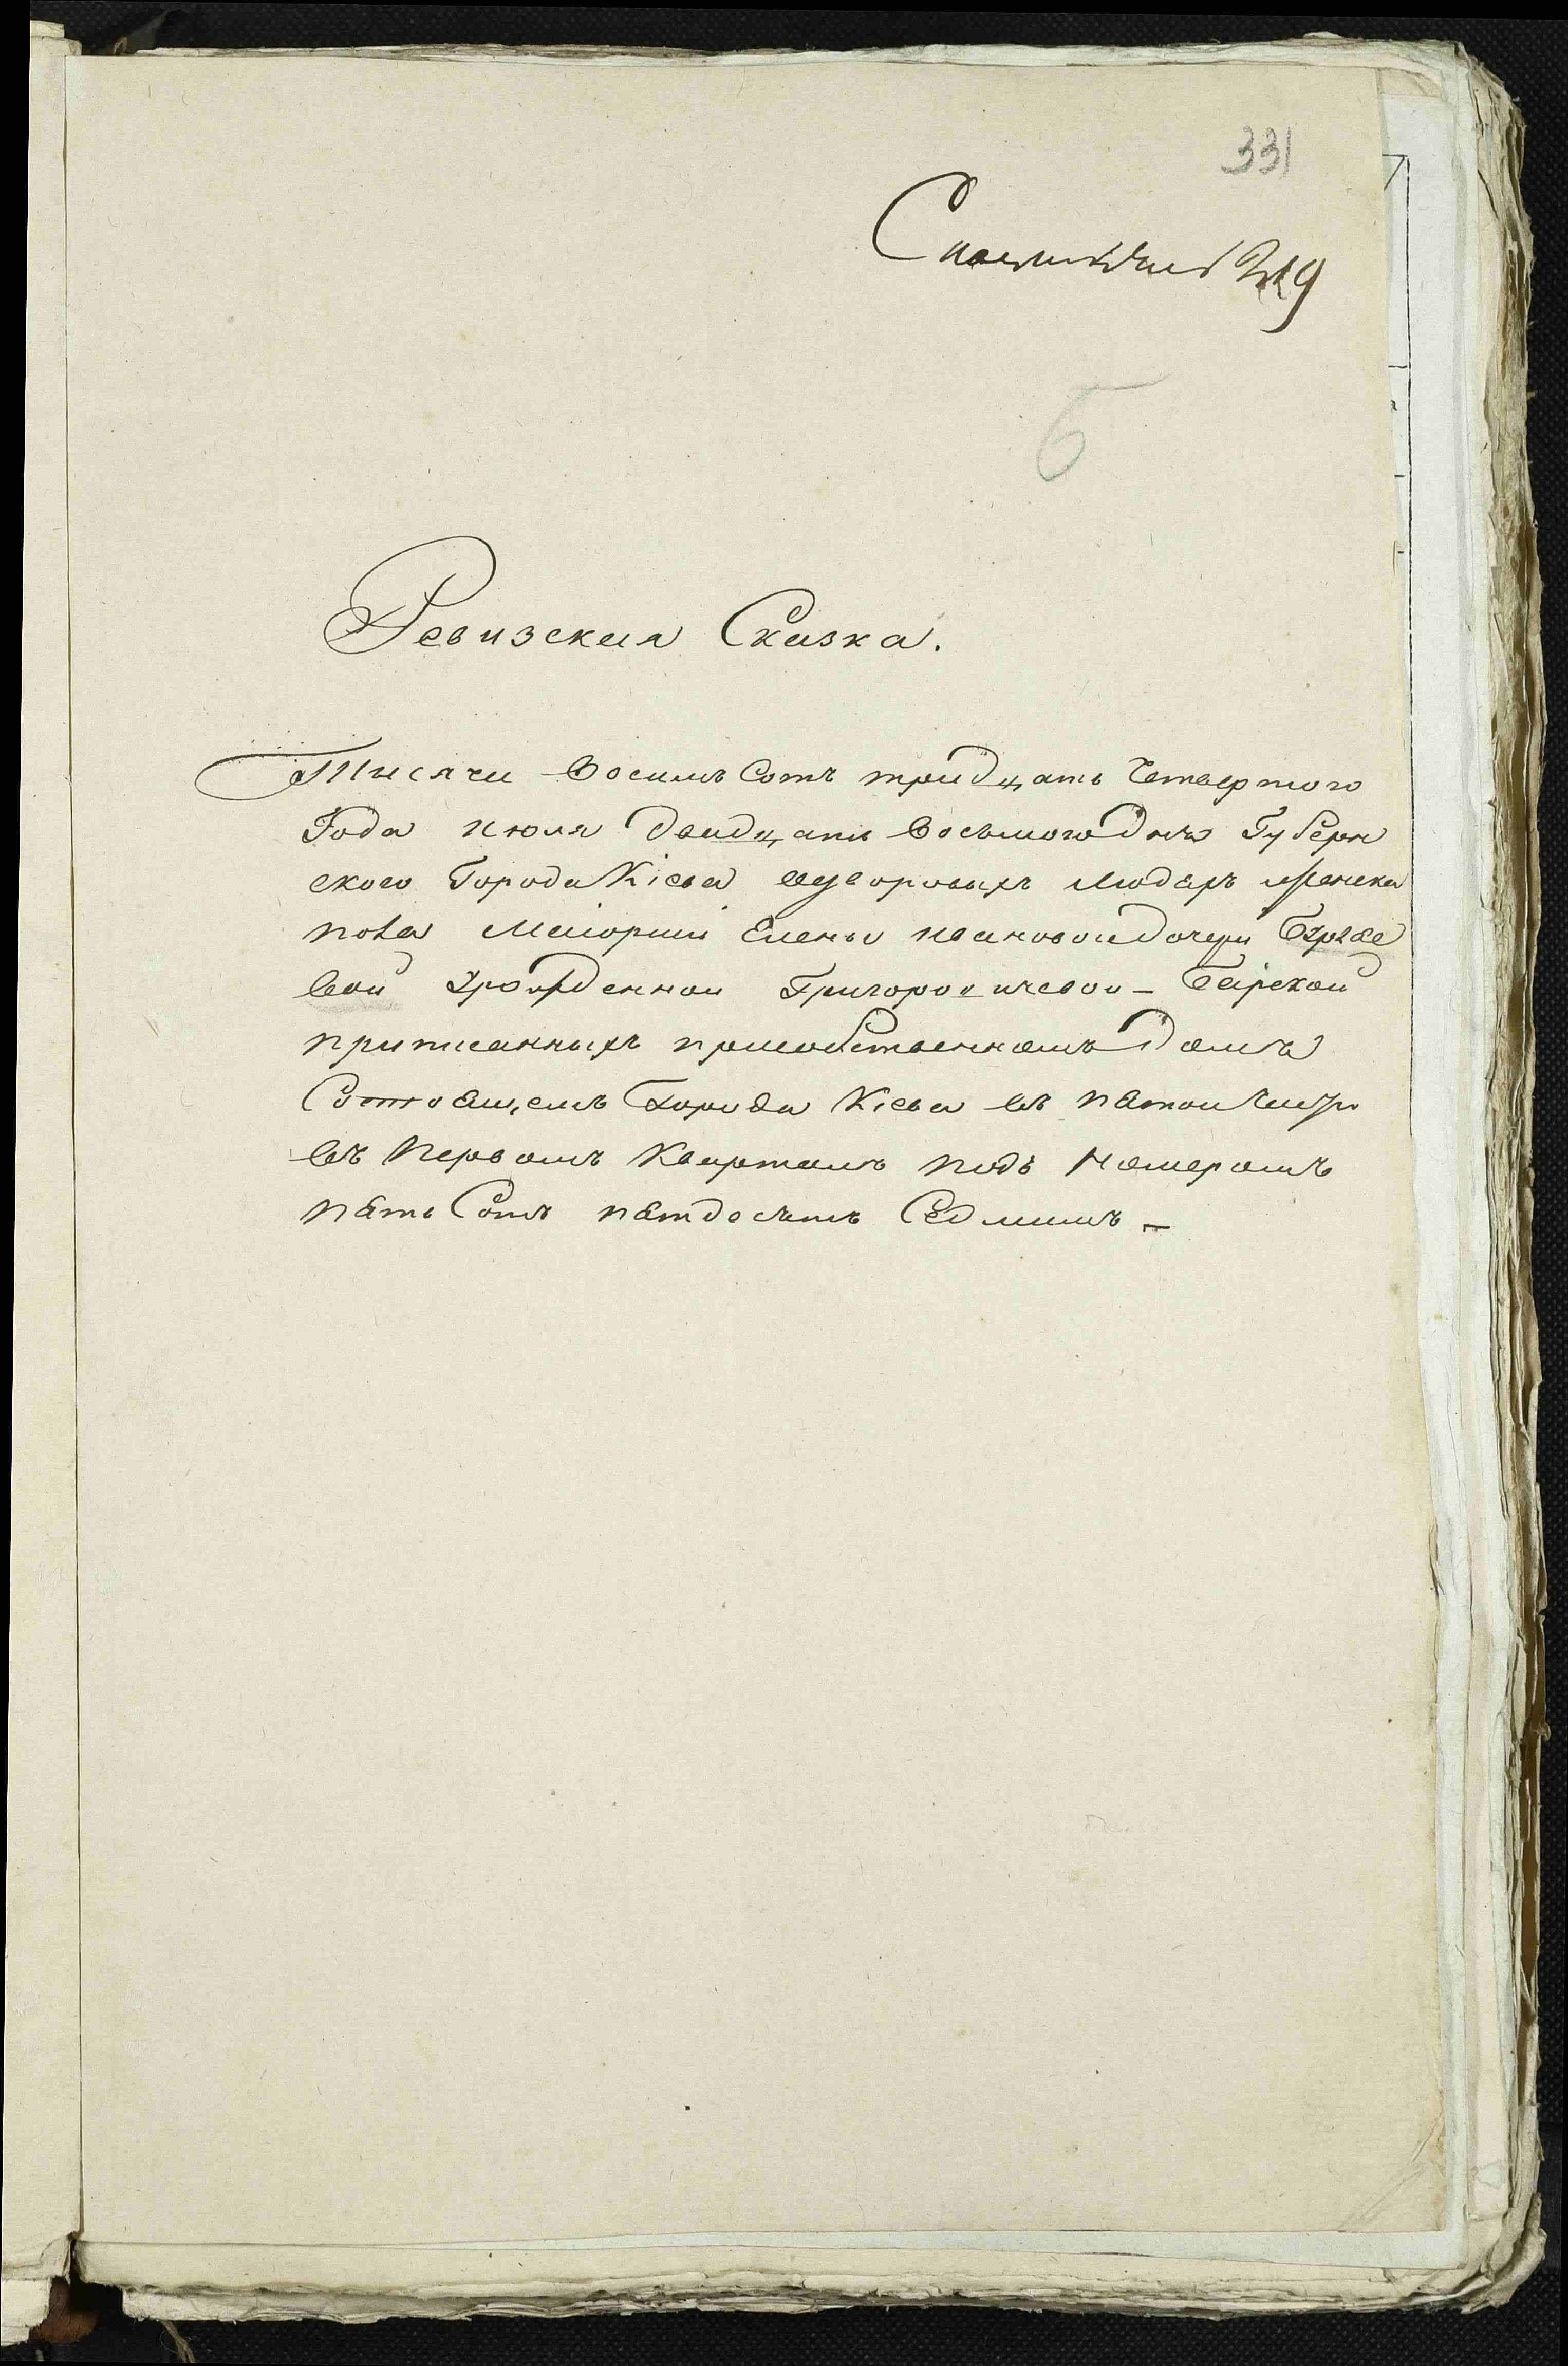 331
6
Ревизская Сказка.
Тысяча восимъ Сотъ тридцать Четвертого
Года июля двадцать восьмого Дня Губерн
ского Города Кіева о дворовыхъ людяхъ мужеска
пола Маіорши Елены Ивановой дочери Бурже
вой Урожденной Григоровичевой - Барской
приписанныхъ присобственномъ Доме
Состоящемъ Города Кіева въ пятой части
въ Первомъ Квартале подъ Номеромъ
пять Сотъ пятдесятъ Седмимъ -